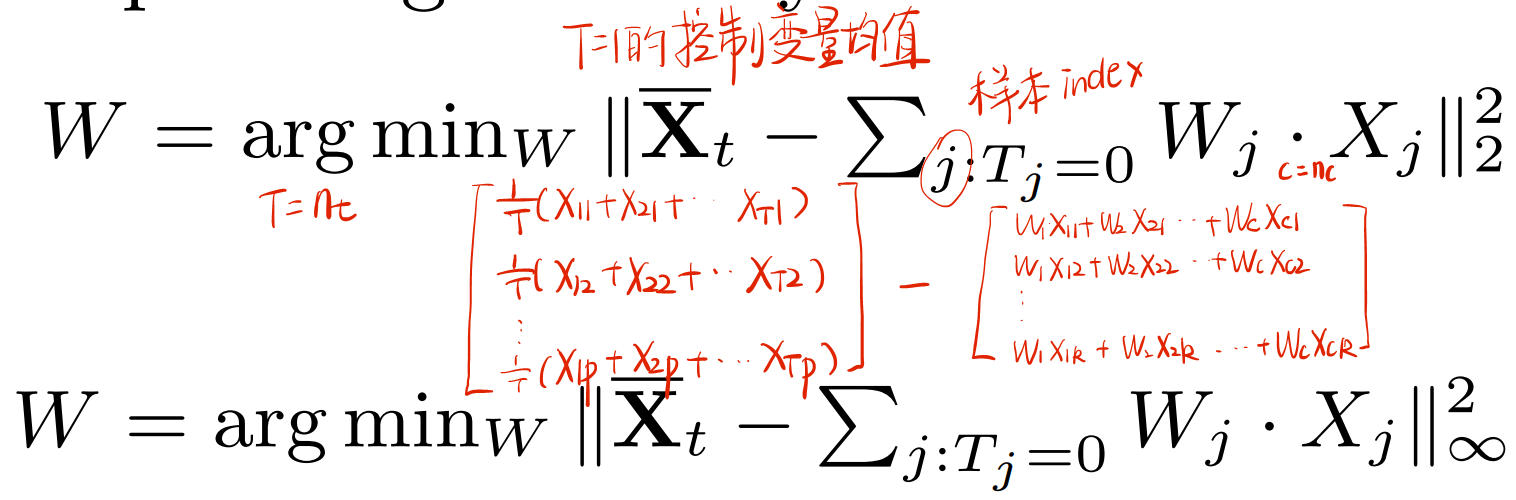 T=1的控制变量均值
样本index
W = arg min_W ‖X̅_t − ∑_{j:T_j=0} W_j · X_j‖_2^2
T=n_t
c=n_c
1/T(X11+X21+··· XT1)
1/T(X12+X22+··· XT2)
⋮
1/T(X1p+X2p+··· XTp)
−
W1X11+W2X21···+WcXc1
W1X12+W2X22···+WcXc2
⋮
W1X1k+W2X2k···+WcXck
W = arg min_W ‖X̅_t − ∑_{j:T_j=0} W_j · X_j‖_∞^2